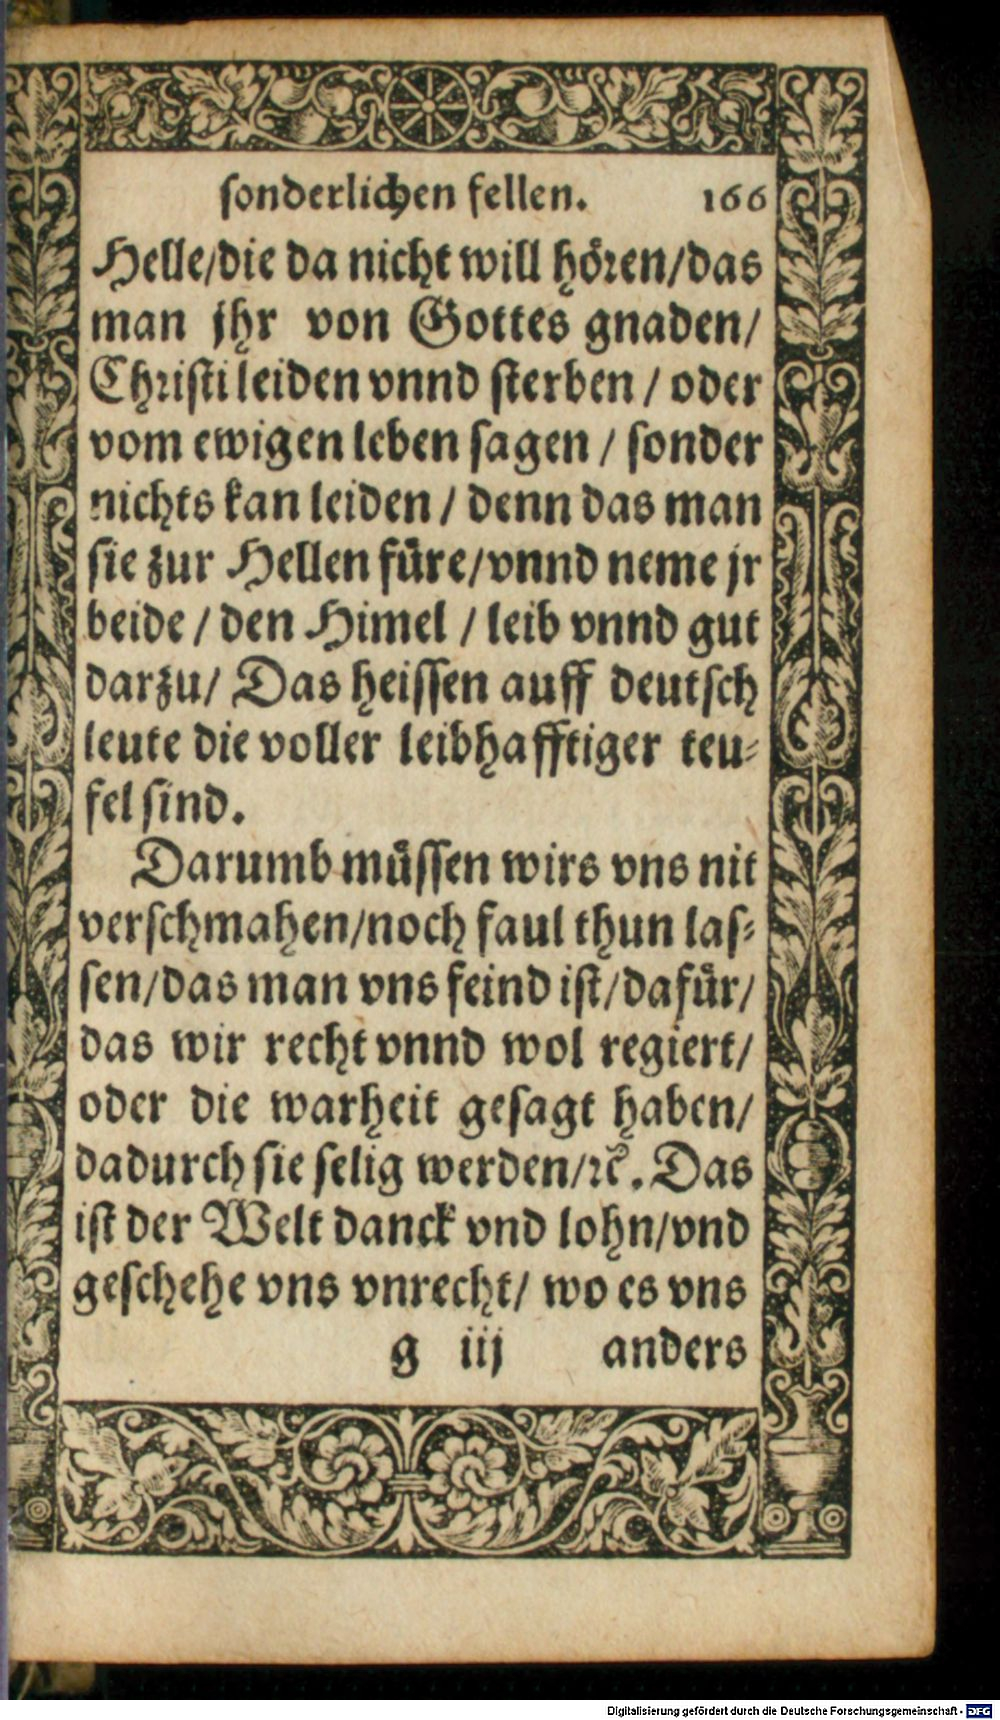 sonderlichen fellen. 166
Helle/die da nicht will hören/das
man jhr von Gottes gnaden/
Christi leiden vnnd sterben / oder
vom ewigen leben sagen / sonder
nichts kan leiden / denn das man
sie zur Hellen füre/vnnd neme jr
beide / den Himel / leib vnnd gut
darzu/ Das heissen auff deutsch
leute die voller leibhafftiger teu-
fel sind.
Darumb müssen wirs vns nit
verschmahen/noch faul thun las-
sen/das man vns feind ist/dafür/
das wir recht vnnd wol regiert/
oder die warheit gesagt haben/
dadurch sie selig werden/ꝛc̃. Das
ist der Welt danck vnd lohn/vnd
geschehe vns vnrecht/ wo es vns
g iij anders
Digitalisierung gefördert durch die Deutsche Forschungsgemeinschaft - DFG